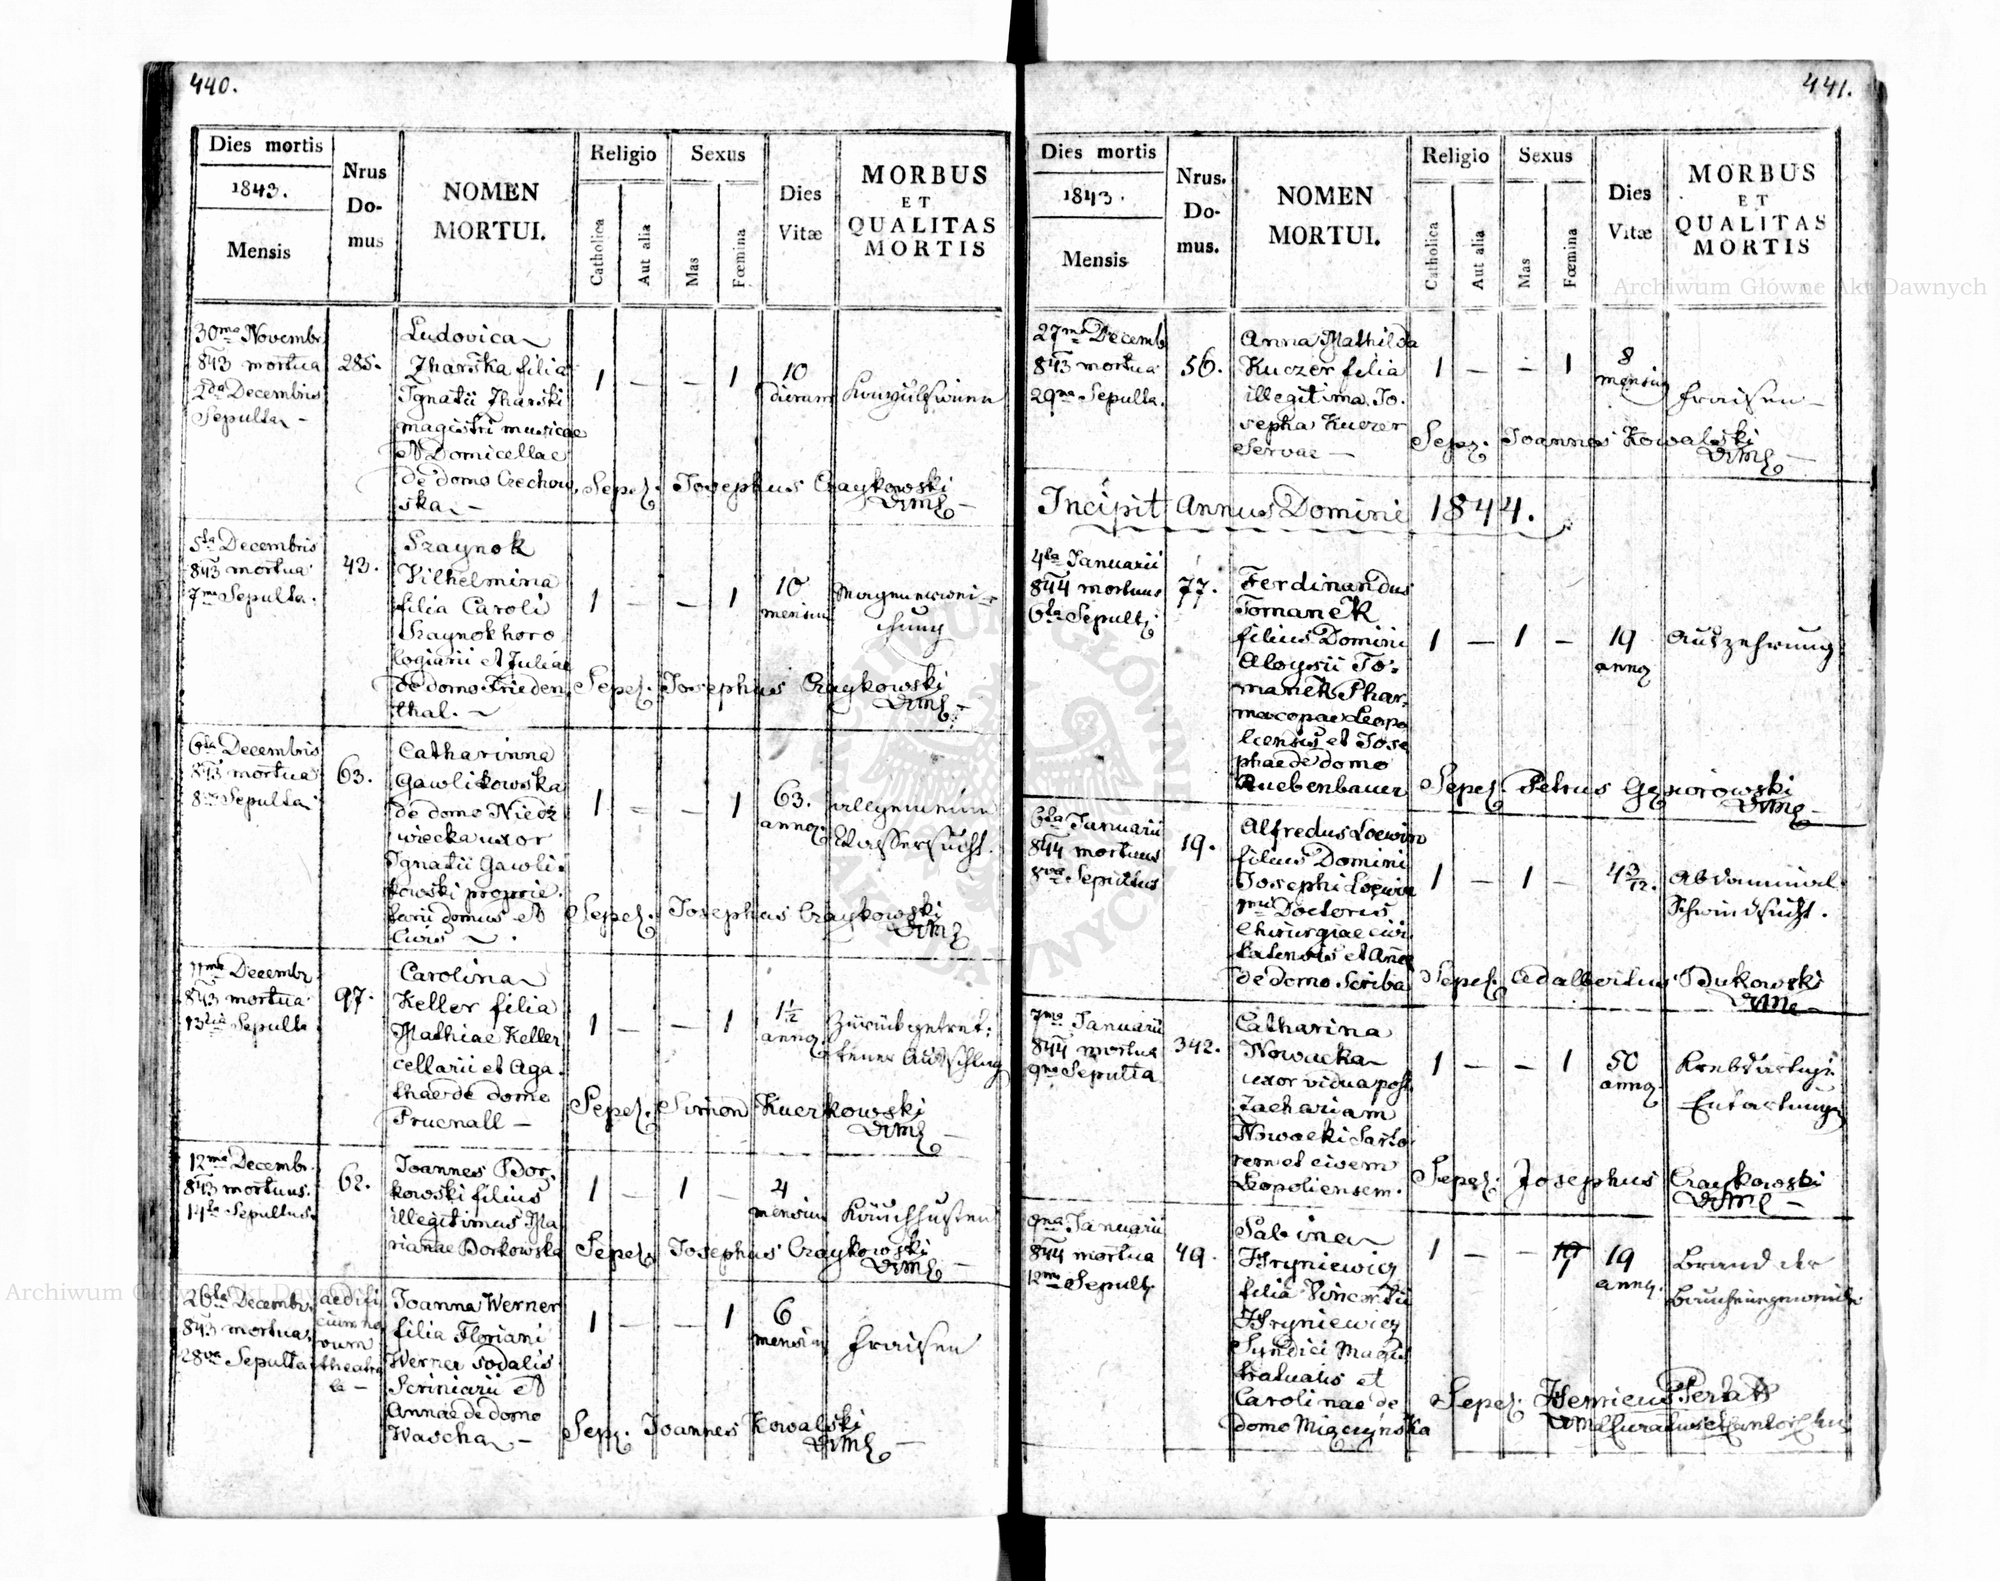 440.
Dies mortis
1843.
Mensis
Nrus
Do-
mus
NOMEN
MORTUI.
Religio
Catholica
Aut alia
Sexus
Mas
Fœmina
Dies
Vitæ
MORBUS
ET
QUALITAS
MORTIS
30ma Novembr.
843 mortua
2da Decembris
Sepulta —
285.
Ludovica
Zharska filia
Ignatii Zharski
magistri musicae
et Domicellae
de domo Czechow,
ska —
1 — — 1
10
dierum
Konvulsionen
Sepel. Josephus Czaykowski
5ta Decembris
843 mortua
7ma Sepulta.
43.
Szaynok
Vilhelmina
filia Caroli
Szaynok horo
logiarii et Juliae
de domo Frieden
thal. —
1 — — 1
10
mensium
Magenerwei-
chung
Sepel. Josephus Czaykowski
6ta Decembris
843 mortua
8va Sepulta
63.
Catharinna
Gawlikowska
de domo Niedz
wiecka uxor
Ignatii Gawli.
kowski proprie.
tarii domus et
Civis —.
1 — — 1
63.
annor.
allgemeine
Wassersucht.
Sepel. Josephus Czaykowski
11ma Decembr.
843 mortua
13tia Sepulta
97.
Carolina
Keller filia
Mathiae Keller
cellarii et Aga.
thae de domo
Prucnall —
1 — — 1
1½
annor.
Zurückgetret.
tener Ausschlag
Sepel. Simon Kuerkowski
12ma Decembr.
843 mortuus.
14ta Sepultus.
62.
Joannes Bor.
kowski filius
illegitimus Ma
rianae Borkowska
1 — 1 —
4
mensium
Keuchhusten
Sepel. Josephus Czaykowski
26ta Decembr.
843 mortua.
28va Sepulta
aedifi
cium no
vum
theatra
le —
Joanna Werner
filia Floriani
Werner sodalis
Scriniarii et
Annae de domo
Wascha —
1 — — 1
6
mensium
Fraisen
Sep. Joannes Kowalski
441.
Dies mortis
1843.
Mensis
Nrus.
Do-
mus.
NOMEN
MORTUI.
Religio
Catholica
Aut alia
Sexus
Mas
Fœmina
Dies
Vitæ
MORBUS
ET
QUALITAS
MORTIS
27ma Decemb
843 mortua
29na Sepulta.
56.
Anna Mathilda
Kuczer filia
illegitima Jo.
sepha Kuczer
Servae —
1 — — 1
8
mensium
Fraisen —
Sepel. Joannes Kowalski
Incipit Annus Domini 1844.
4ta Januarii
844 mortuus
6ta Sepult.
77.
Ferdinandus
Tomanek
filius Domini
Aloysii To.
manek Phar,
macopae Leopo
liensis et Jose
phae de domo
Ruebenbauer
1 — 1 —
19
annor
Auszehrung
Sepel. Petrus Gąsiorowski
6ta Januarii
844 mortuus
8va Sepultus
19.
Alfredus Loewin
filius Domini
Josephi Loewin
Doctoris
Chirurgiae civi.
tatensis et Anae
de domo Scriba
1 — 1 —
4 3/12.
Abdominal
Schwindsucht.
Sepel. Adalbertus Bukowski
7ma Januarii
844 mortua
9na Sepulta
342.
Catharina
Nowacka
uxor vidua post
Zachariam
Nowacki Sarto
rem et civem
Leopoliensem.
1 — — 1
50
annor
Krebsartige
Entartung
Sepel. Josephus Czaykowski
9na Januarii
844 mortua
12ma Sepult.
49.
Sabina
Hryniewicz
filia Vincentii
Hryniewicz
Syndici Magis
tratualis et
Carolinae de
domo Miączyńska
1 — —
19
annor.
Brand der
Baucheingeweide
Sepel. Henricus
Archiwum Główne Akt Dawnych
Archiwum Główne Akt Dawnych
ARCHIWUM GŁÓWNE AKT DAWNYCH